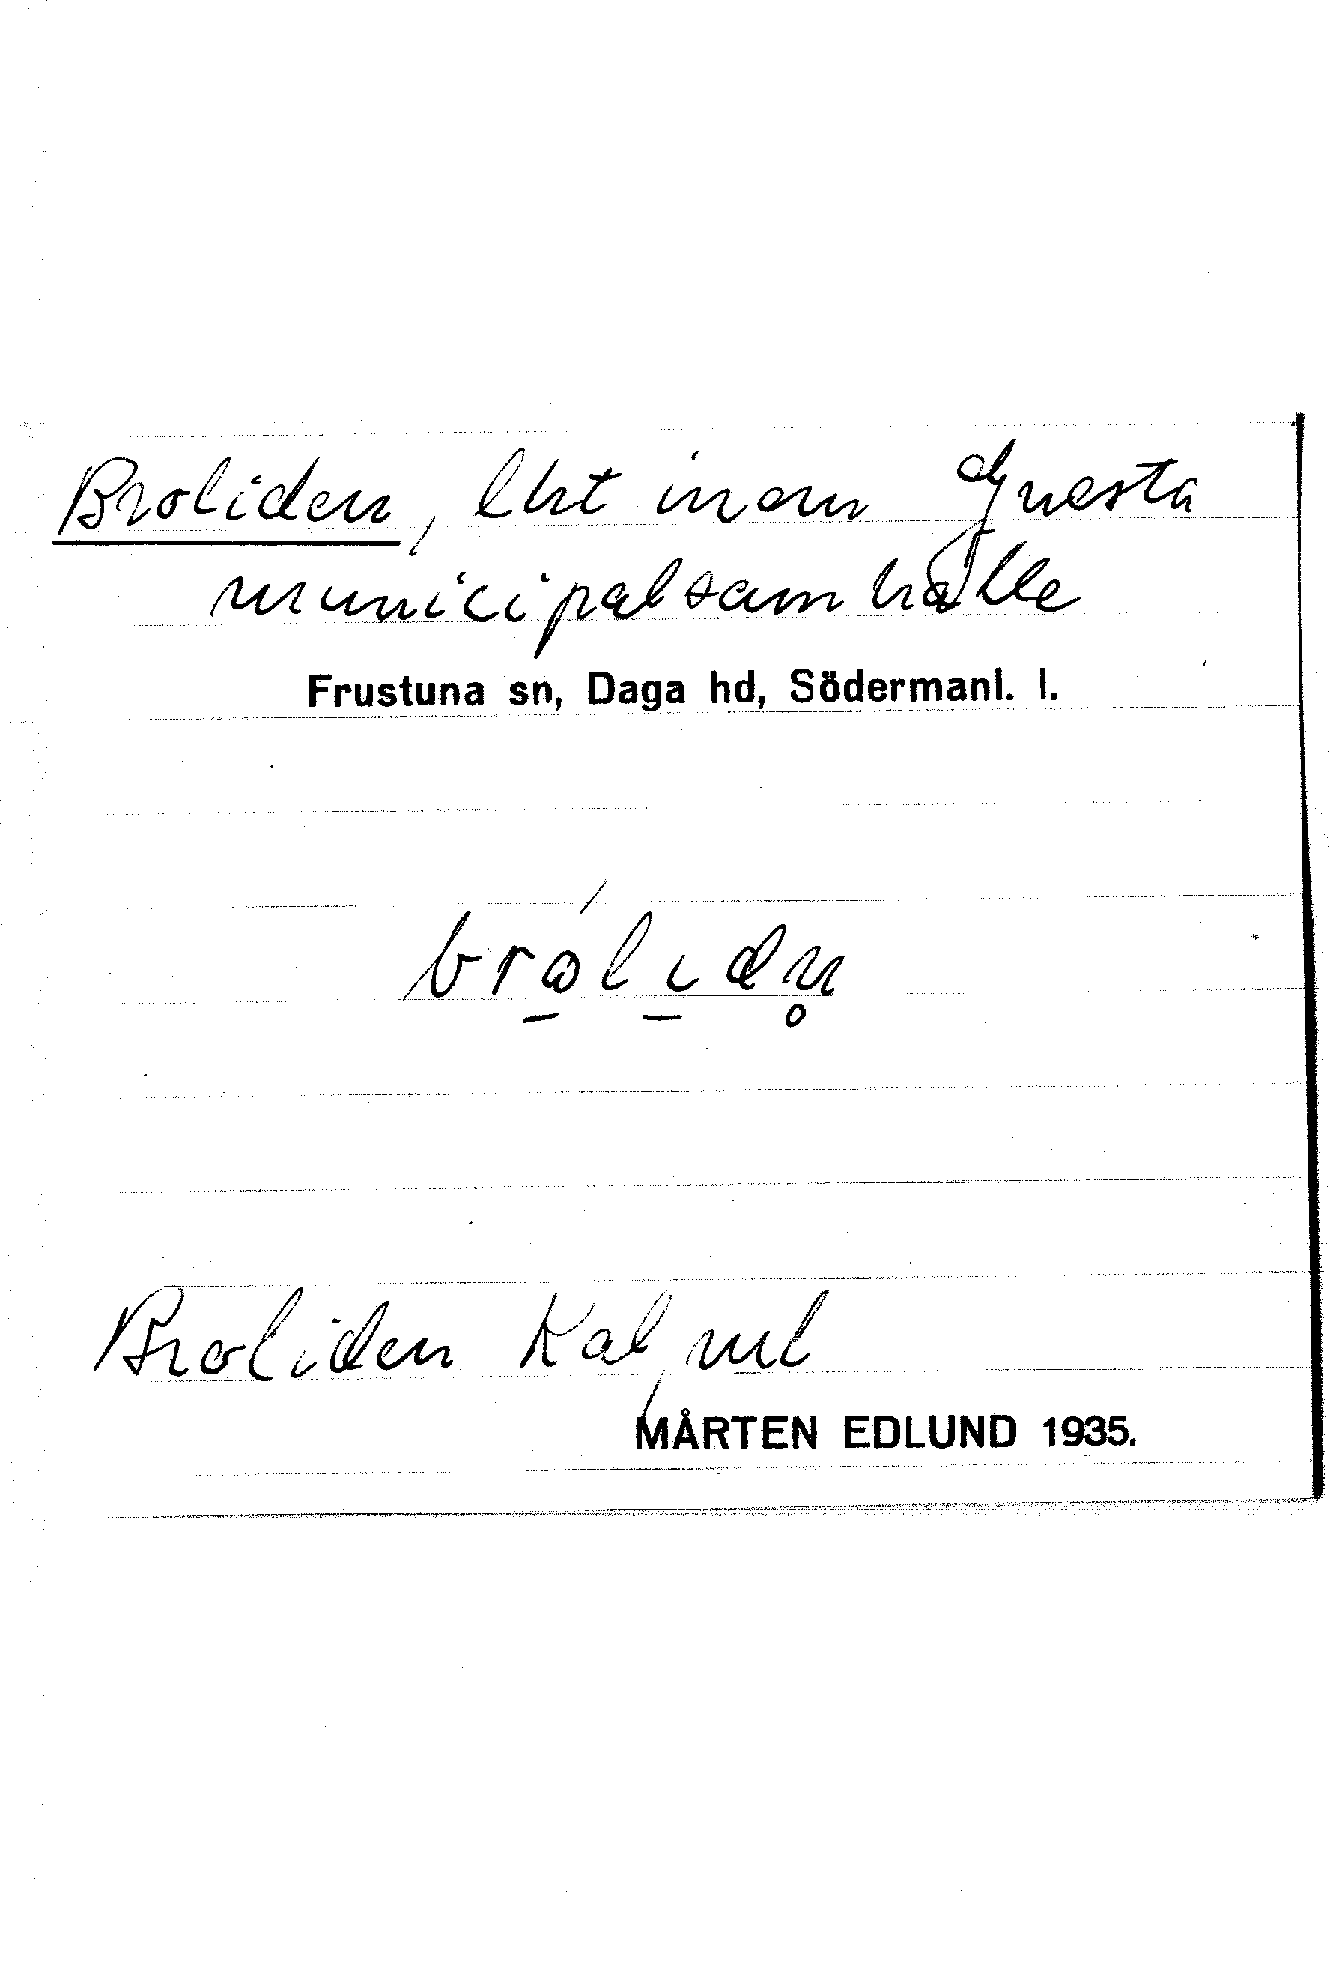 Broliden, lht inom Gnesta
municipalsamhälle
Frustuna sn, Daga hd, Södermanl. l.
Broliden Kal, ml
MÅRTEN EDLUND 1935.